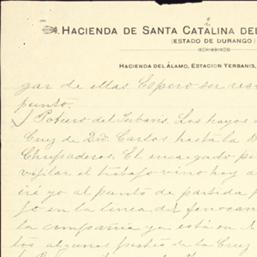 HACIENDA DE SANTA CATALINA DEL
(ESTADO DE DURANGO)
HACIENDA DEL ÁLAMO, ESTACION YERBANIS,
gar de ellas. Espero su res
punto.
Potrero del Yerbanis. Los hoyos
Cruz de Dn. Carlos hasta la B
Chupaderos. El encargado p
vigilar el trabajo vino hoy a
iré yo al punto de partida p
jo en la linea del ferrocar
la compañía ya está en
los algunos postes de la Cruz